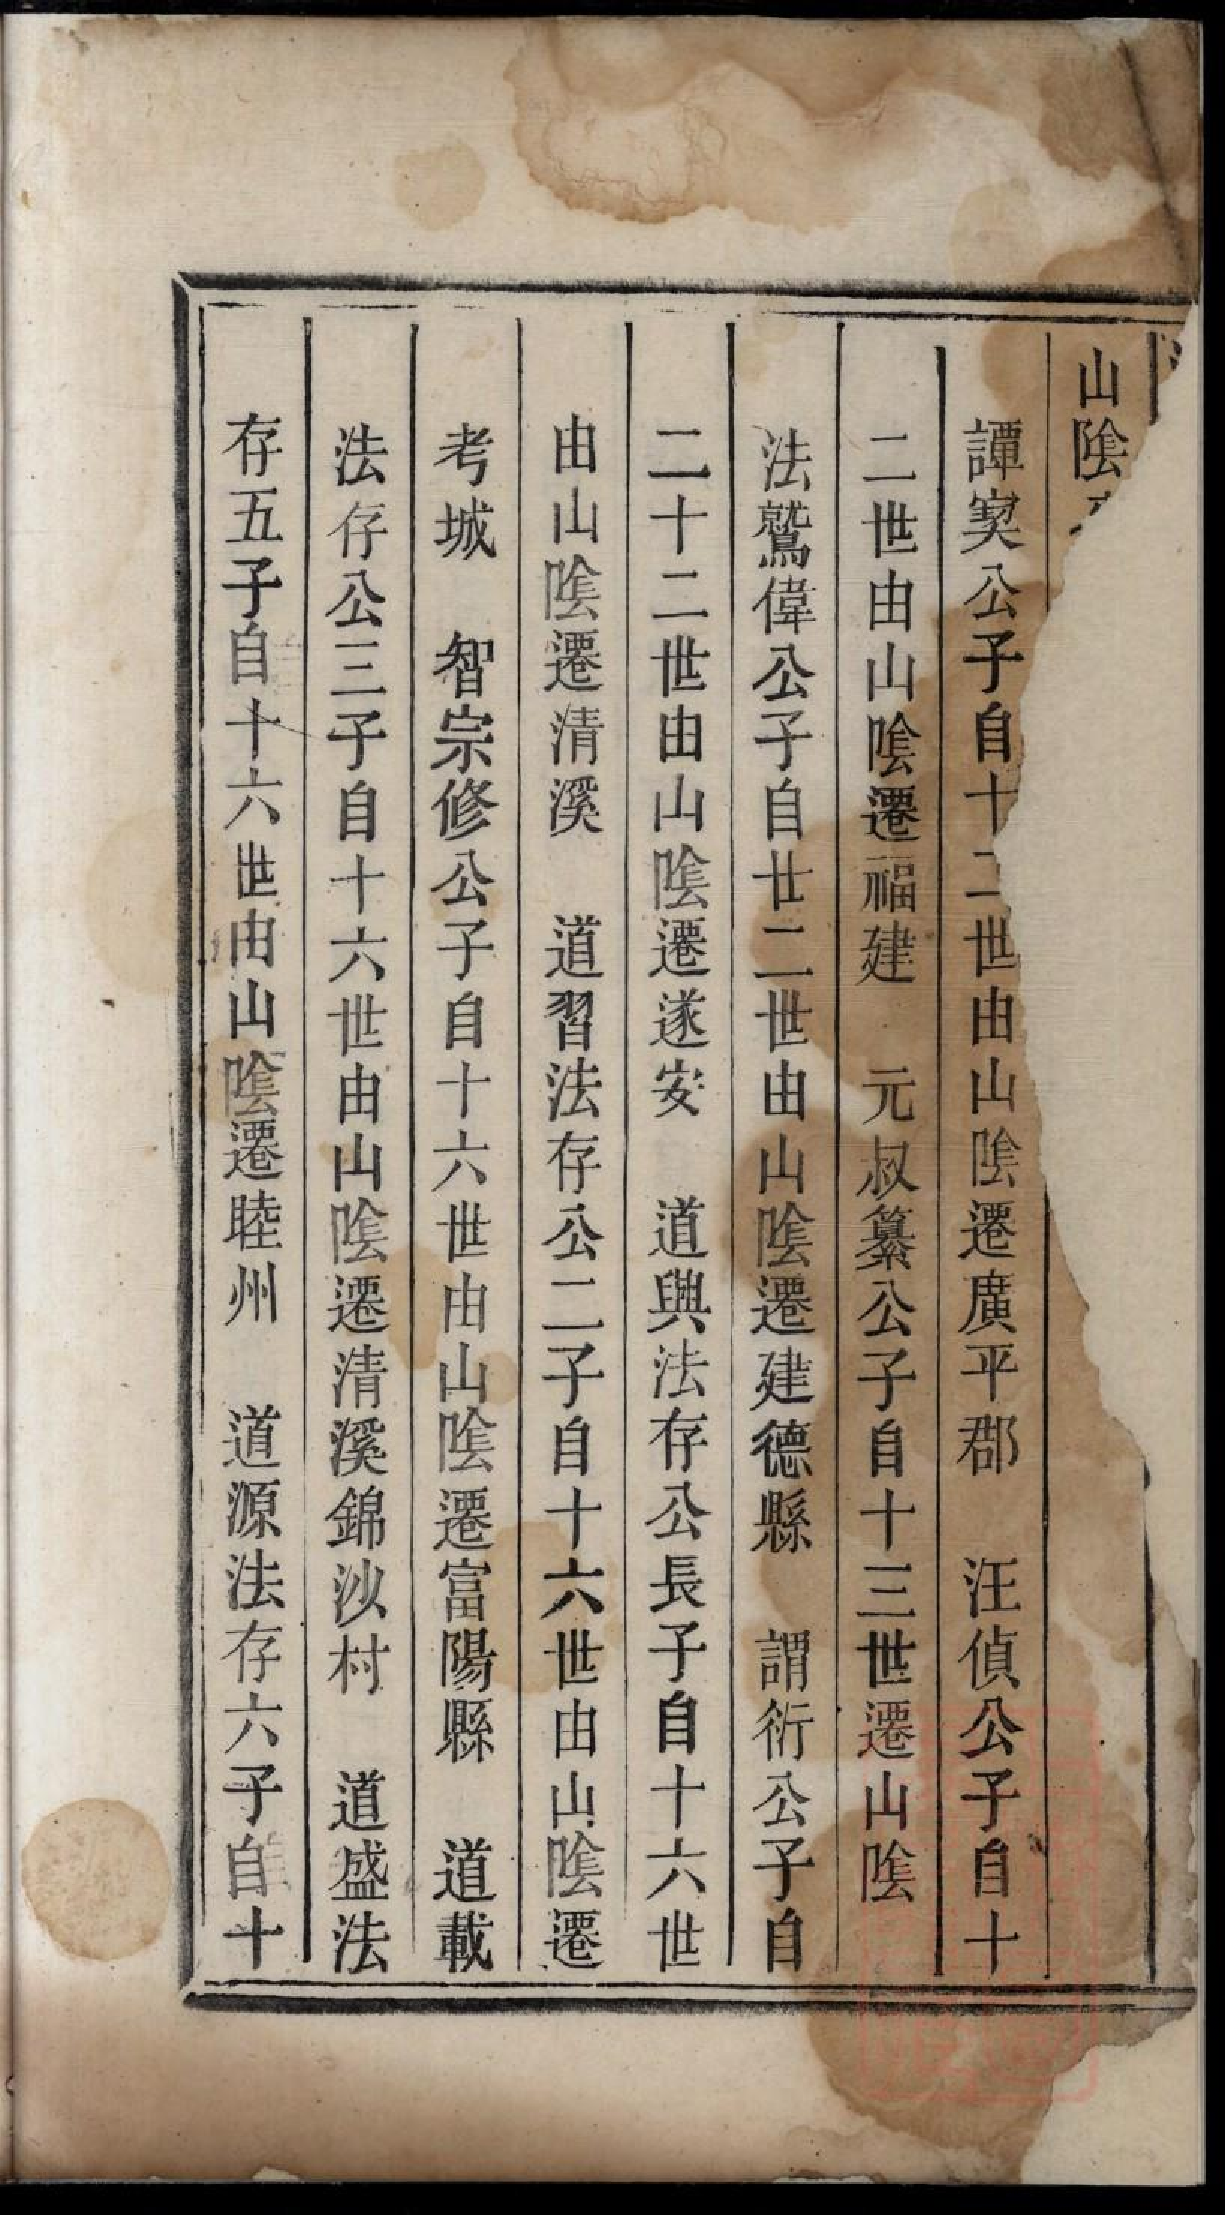 山隂
譚契公子自十二世由山隂遷廣平郡　汪偵公子自十
二世由山隂遷福建　元叔纂公子自十三世遷山隂
法鷲偉公子自廿二世由山隂遷建德縣　謂衍公子自
二十二世由山隂遷遂安　道與法存公長子自十六世
由山隂遷清溪　道習法存公二子自十六世由山隂遷
考城　智宗修公子自十六世由山隂遷富陽縣　道載
法存公三子自十六世由山隂遷清溪錦沙村　道盛法
存五子自十六世由山隂遷睦州　道源法存六子自十